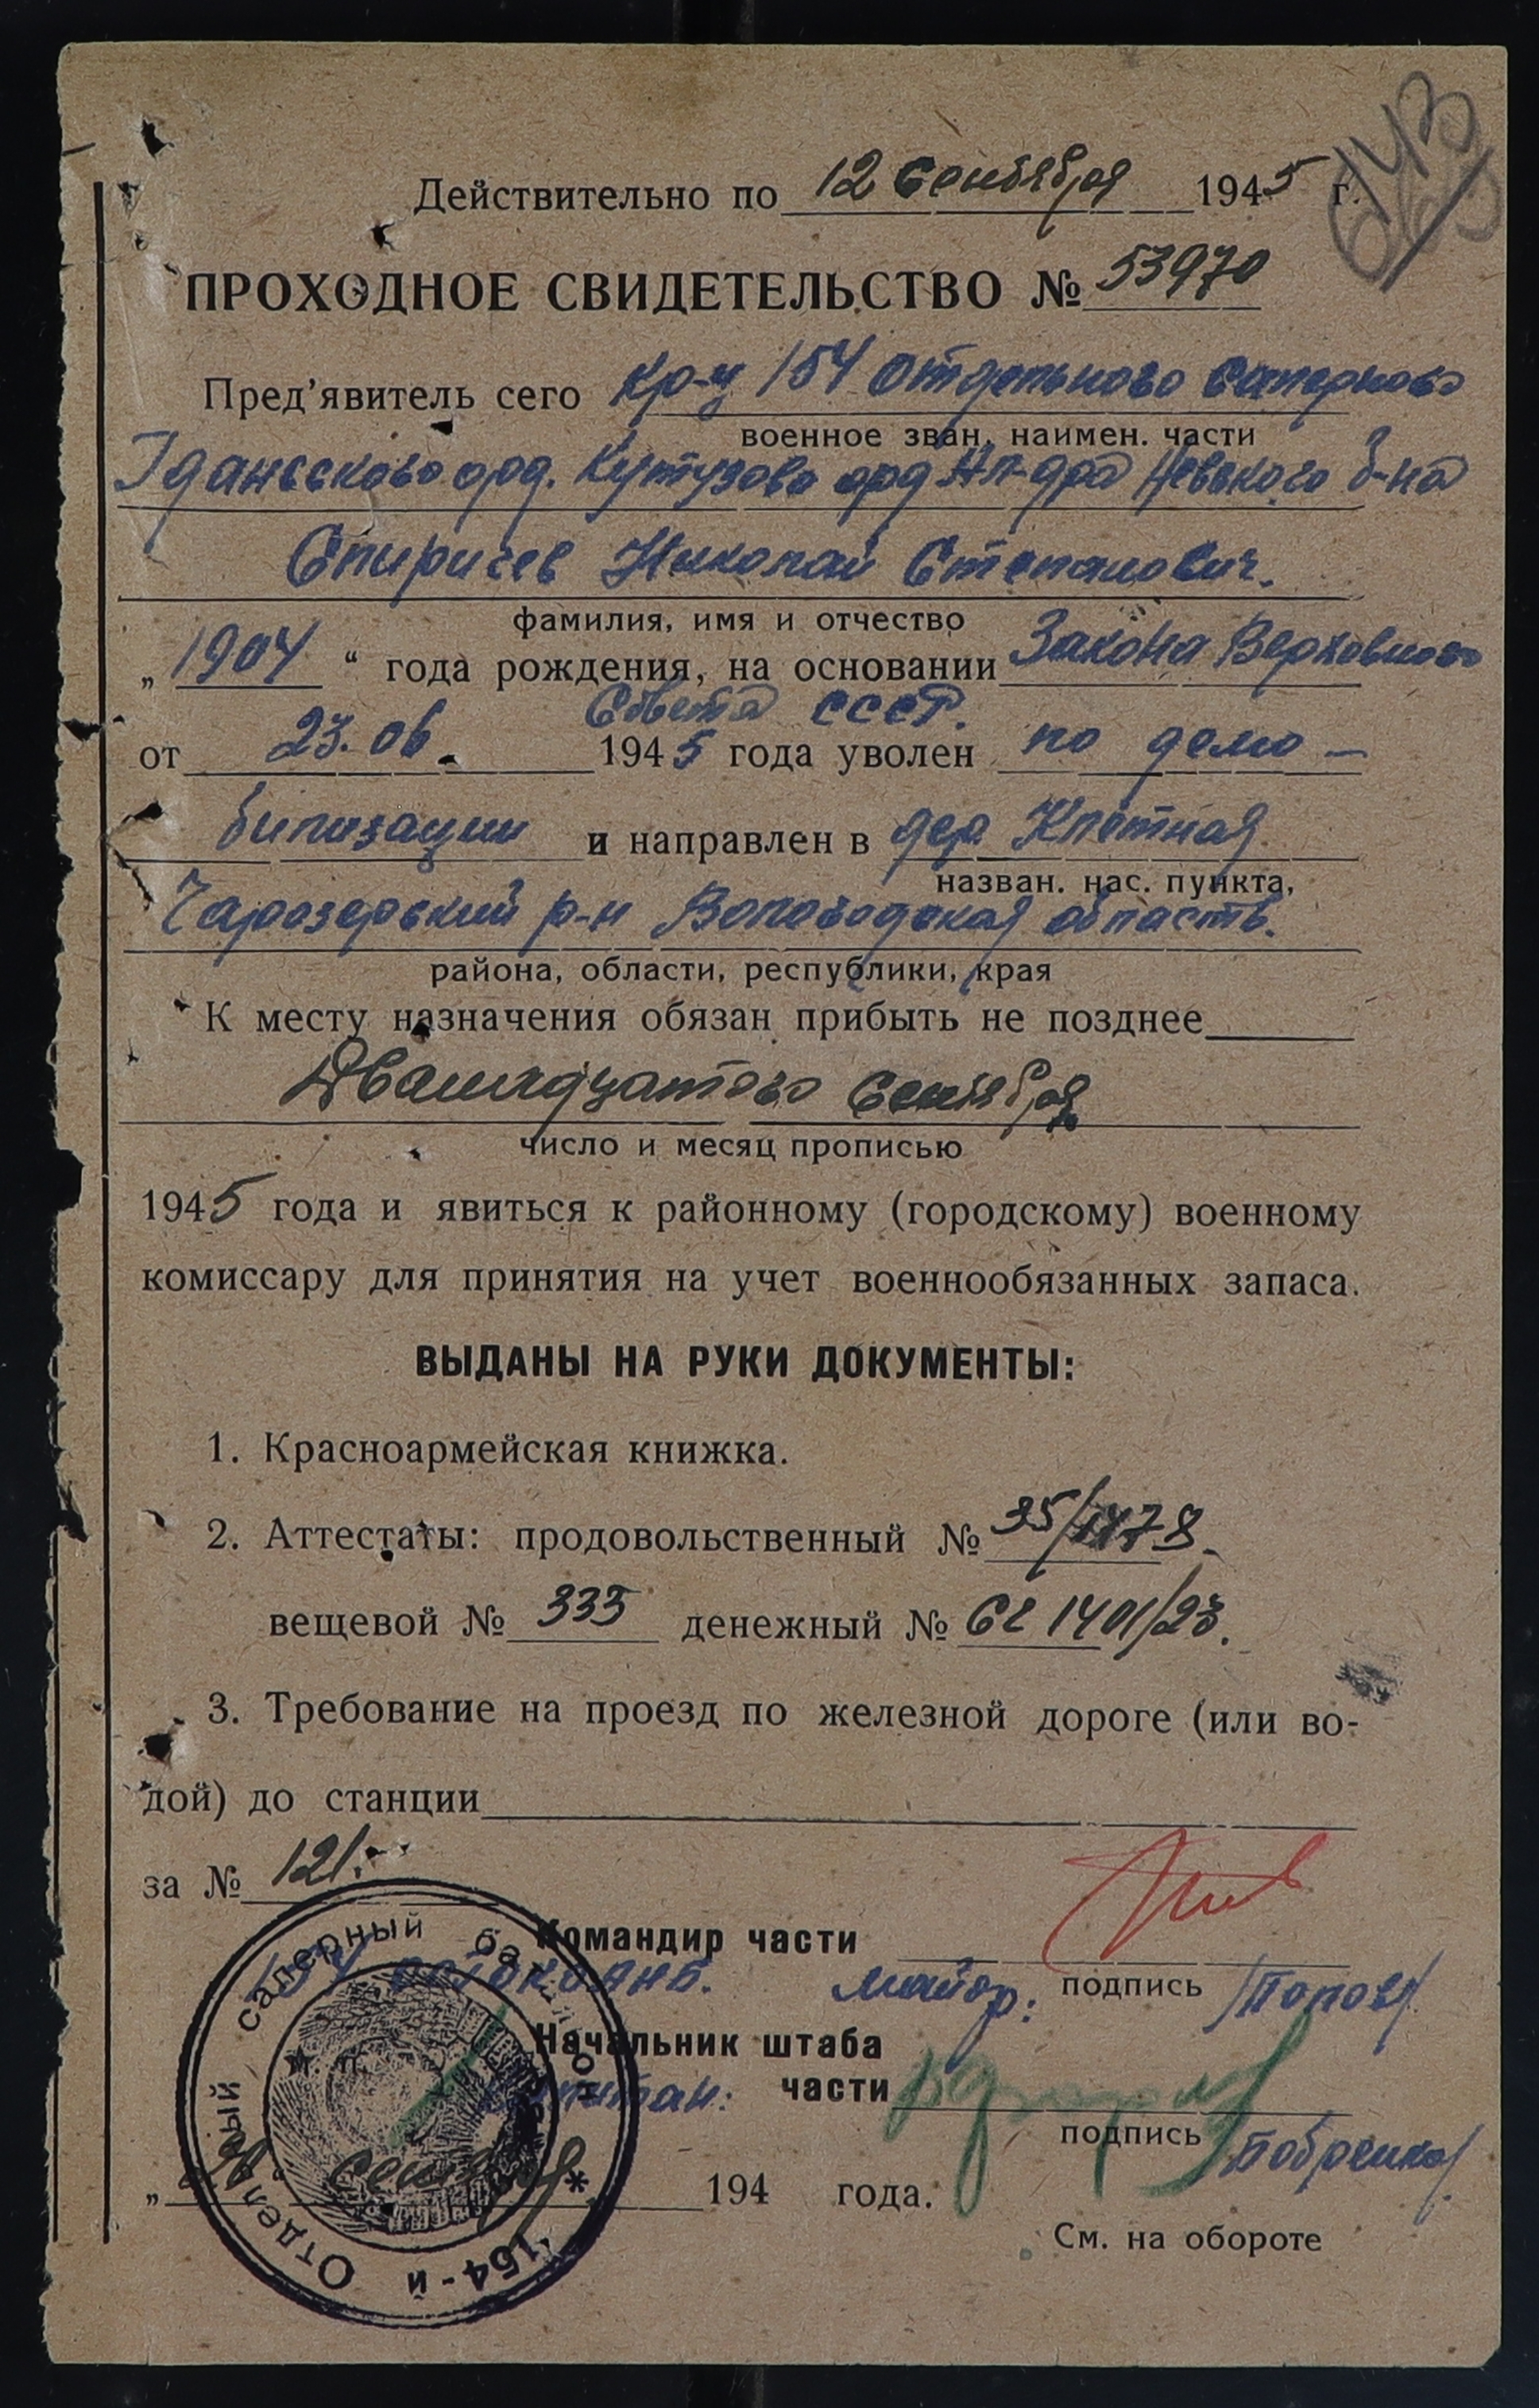 643
Действительно по 12 Сентября 1945 г.
ПРОХОДНОЕ СВИДЕТЕЛЬСТВО № 53970
Пред'явитель сего кр-ц 154 отдельного саперного
военное зван. наимен. части
Гданьсского орд. Кутузова орд Ал-дра Невского б-на
Спиричев Николай Степанович.
фамилия, имя и отчество
„ 1904 “ года рождения, на основании Закона Верховного
Совета СССР.
от 23.06. 1945 года уволен по демо-
билизации и направлен в дер. Клетная
назван. нас. пункта,
Чарозерский р-н Вологодская область.
района, области, республики, края
К месту назначения обязан прибыть не позднее
Двадцатого Сентября
число и месяц прописью
1945 года и явиться к районному (городскому) военному
комиссару для принятия на учет военнообязанных запаса.
ВЫДАНЫ НА РУКИ ДОКУМЕНТЫ:
1. Красноармейская книжка.
2. Аттестаты: продовольственный № 35/1478.
вещевой № 333 денежный № 1401/23.
3. Требование на проезд по железной дороге (или во-
дой) до станции
за № 121.
Командир части
154 майор: подпись /Попов/
Начальник штаба
капитан: части
подпись
м. п.
„ сентября 194 года.
См. на обороте
154-й Отдельный саперный батальон